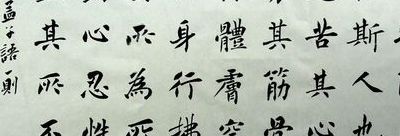 斯人也
苦其心
其筋骨
體膚空
身行拂
所為所
心忍性
其所不
孟子語一則